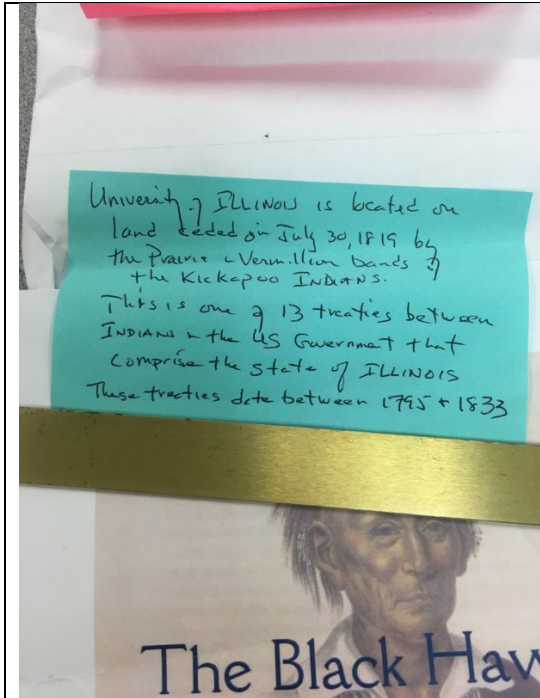 University of ILLINOIS is located on
land ceded on July 30, 1819 by
the Prairie & Vermillion bands of
the Kickapoo INDIANS.
This is one of 13 treaties between
INDIANS & the US Government that
comprise the state of ILLINOIS
These treaties date between 1795 + 1833
The Black Haw